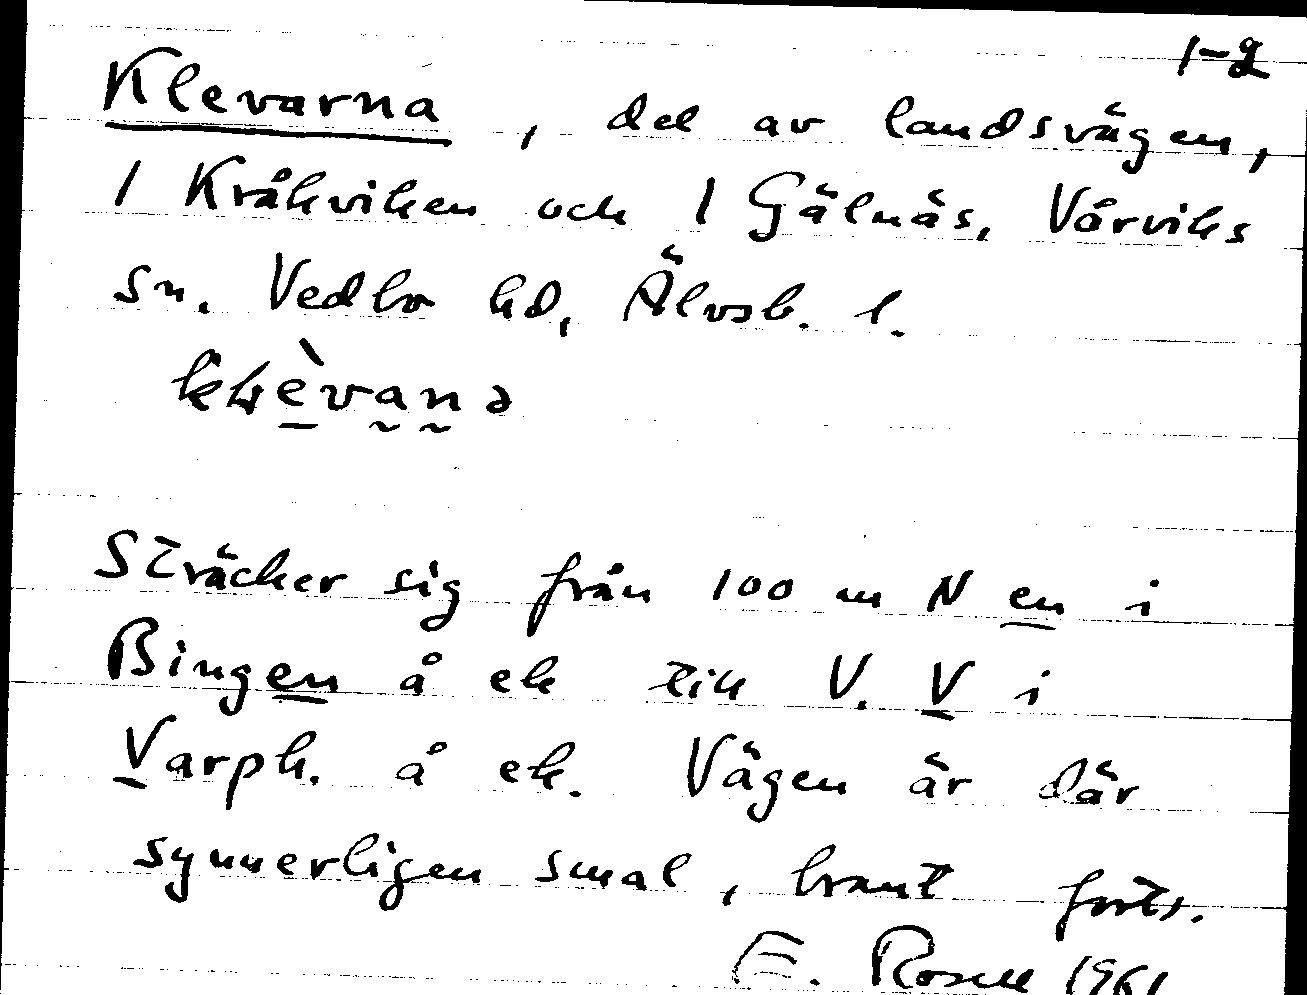 1-2
Klevarna, del av landsvägen,
1 Kråkviken och 1 Gälnäs, Vårviks
sn. Vedbo hd, Älvsb. l.
Sträcker sig från 100 m N en i
Bingen å ek till V. V i
Varph. å ek. Vägen är där
synnerligen smal, brant forts.
E. Rosell 1961